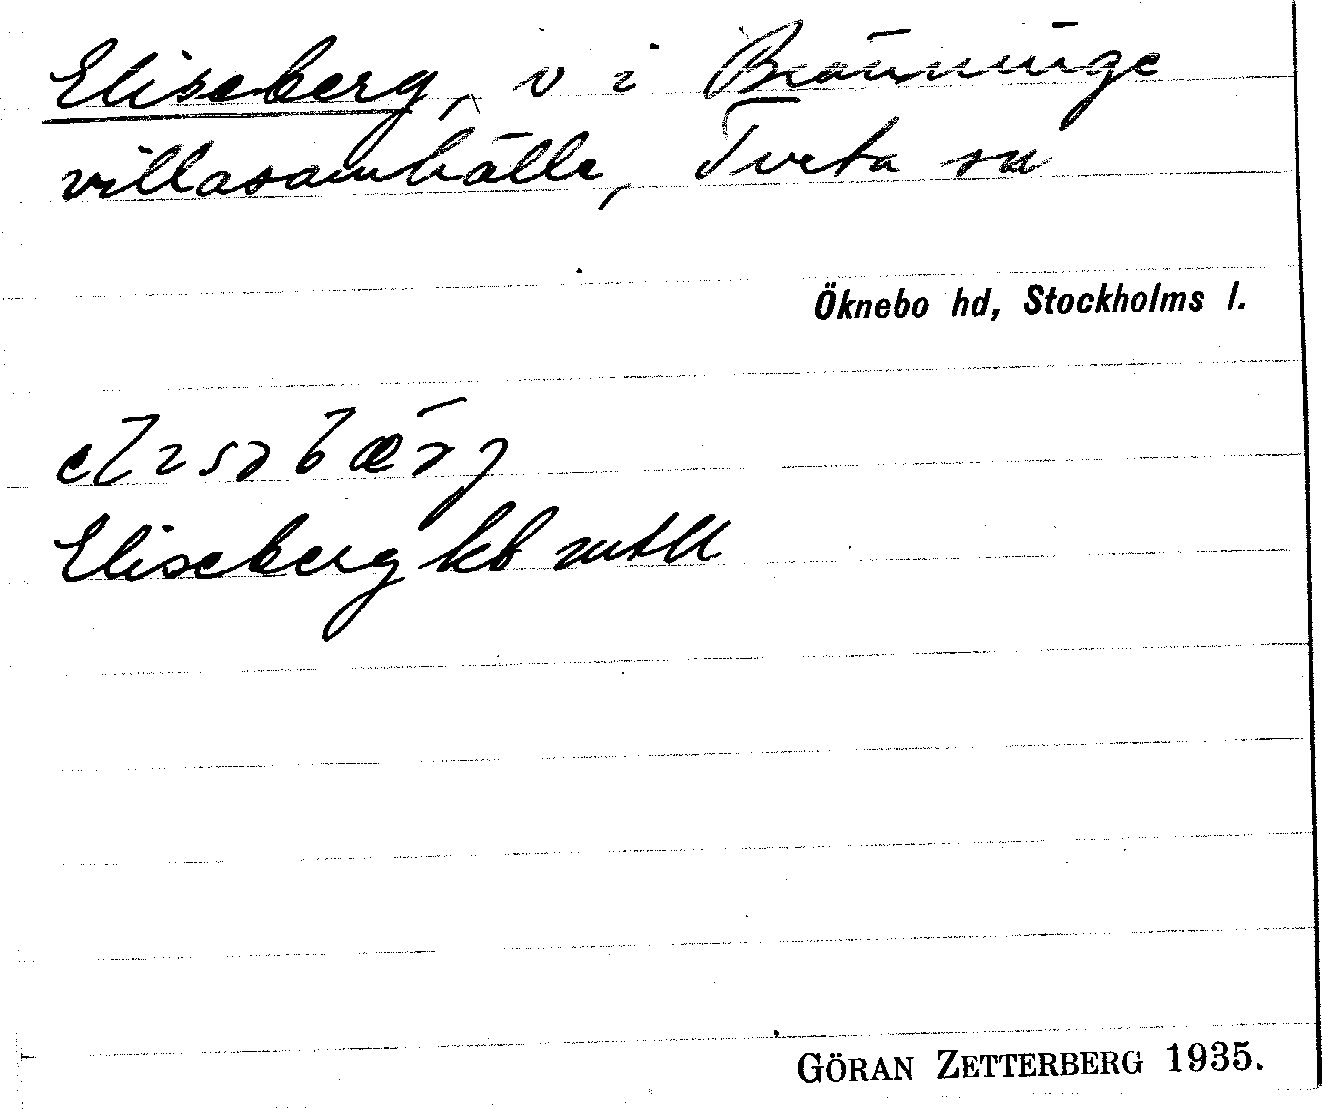 Eliseberg, v i Bränninge
villasamhälle, Tveta sn
Öknebo hd, Stockholms l.
Eliseberg kb
GÖRAN ZETTERBERG 1935.